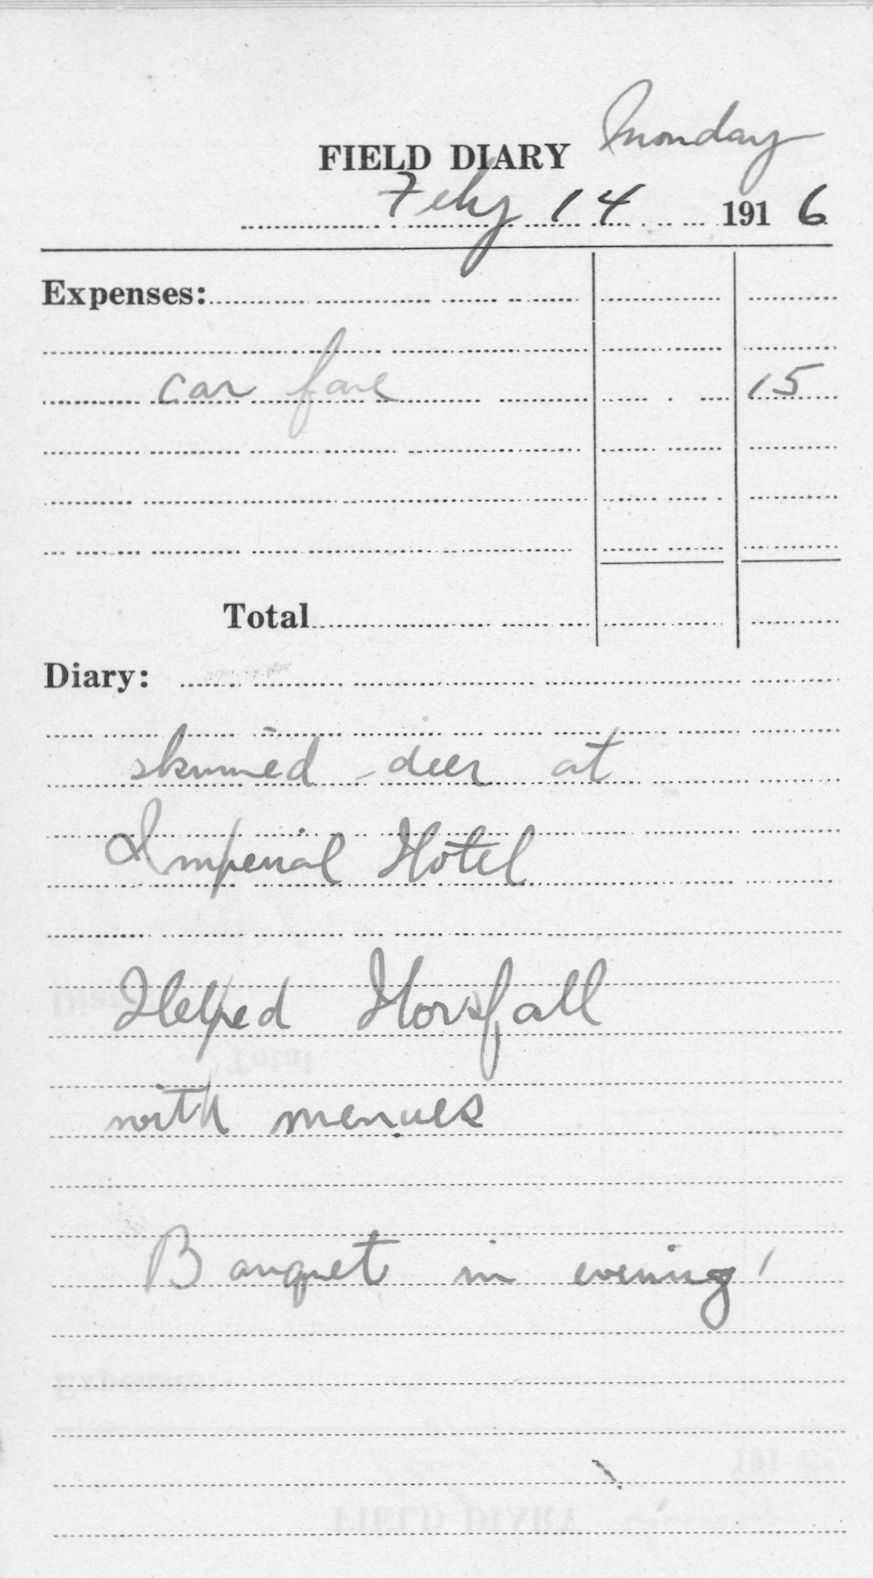 FIELD DIARY Monday
Feby 14 1916
Expenses:
car fare 15
Total
Diary:
skinned deer at
Imperial Hotel
Helped Horsfall
with menues
Banquet in evening